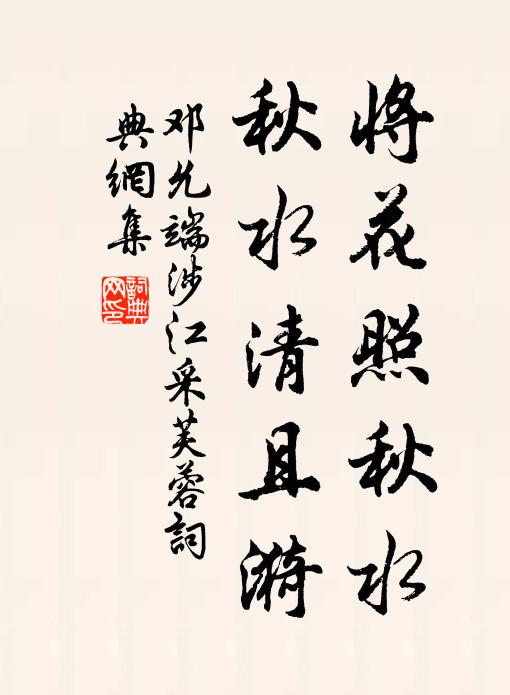 将花照秋水
秋水清且漪
邓允端涉江采芙蓉詞
典網集
詞典
网印